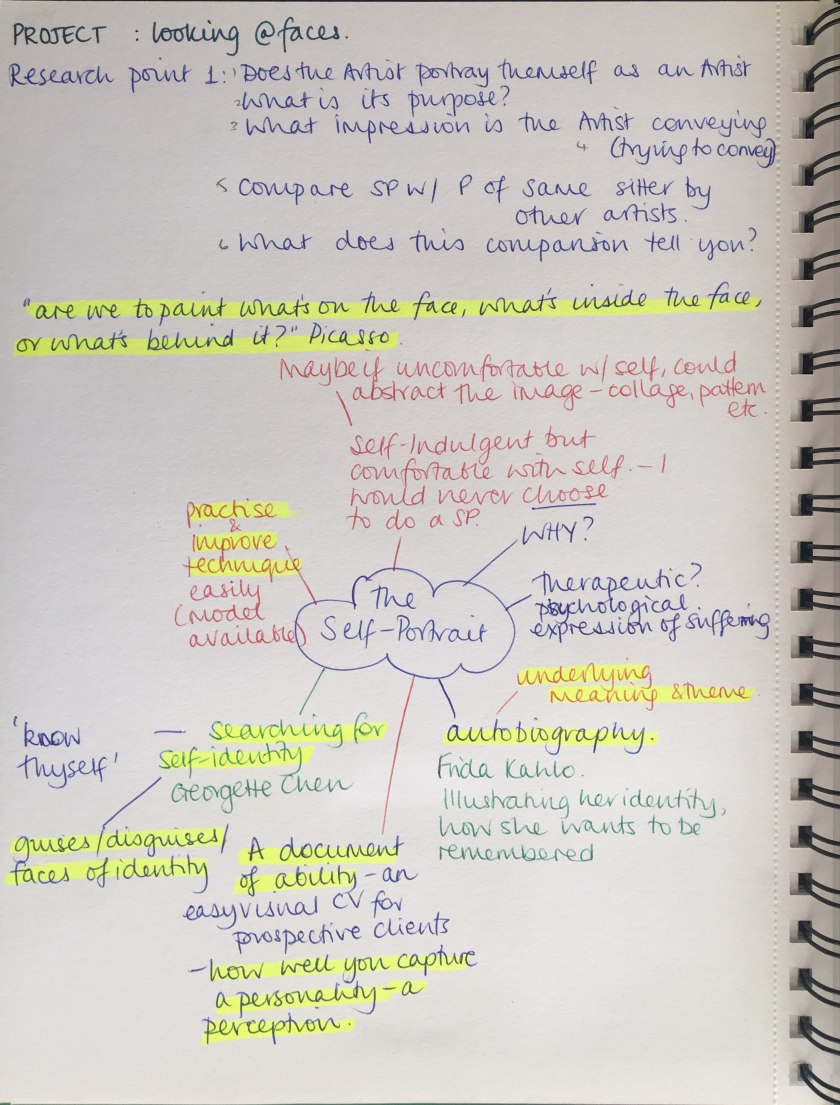 PROJECT : looking @faces.
Research point 1: 1 Does the Artist portray themself as an Artist
2 What is its purpose?
3 What impression is the Artist conveying
4 (trying to convey)
5 Compare SP w/ P of same sitter by
other artists.
6 What does this comparison tell you?
"are we to paint what's on the face, what's inside the face,
or what's behind it?" Picasso.
Maybe if uncomfortable w/ self, could
abstract the image - collage, pattern
etc.
Self-Indulgent but
comfortable with self. - I
would never choose
to do a SP.
practise
&
improve
technique
easily
(model
available)
WHY?
The
Self-Portrait
therapeutic?
psychological.
expression of suffering
underlying
meaning & theme
autobiography.
Frida Kahlo.
Illustrating her identity,
how she wants to be
remembered
'know
thyself'
— searching for
self-identity
Georgette Chen
guises/disguises/
faces of identity
A document
of ability - an
easy visual CV for
prospective clients
- how well you capture
a personality - a
perception.